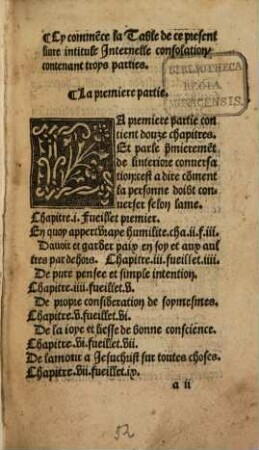 ¶Cy commēce la Table de ce present
liure intitule Internelle consolation
contenant troys parties.
BIBLIOTHECA
REGIA
MONACENSIS.
¶La premiere partie.
LA premiere partie con
tient douze chapitres.
Et parle p̄mieremēt
de linteriore conuersa
tion: cest a dire cōment
la personne doibt con
uerser selon lame.
Chapitre.i. Fueillet premier.
En quoy appert vraye humilite.cha.ii.f.iii.
Dauoir et garder paix en soy et aux aul
tres par dehors. Chapitre.iii.fueillet.iiii.
De pure pensee et simple intention.
Chapitre.iiii.fueillet.v.
De propre consideration de soymesmes.
Chapitre.v.fueillet.vi.
De la ioye et liesse de bonne conscience.
Chapitre.vi.fueillet.vii.
De lamour a Jesuchrist sur toutes choses.
Chapitre.vii.fueillet.ix.
a ii
52